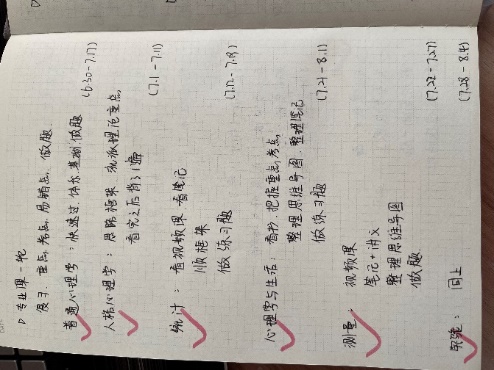 D 专业课一轮
展于:重点,考点,易错点,做题
普通心理学:快速过,体长,基础,做题 (6.30-7.17)
人格心理学:思路框架 梳理理论重点,
看完之后背1遍 (7.1-7.11)
统计:看视频课 看笔记
顺框架
做练习题 (7.12-7.19)
心理学与生活:看书,把握重点,考点,
整理思维导图,整理笔记
做练习题 (7.21-8.1)
测量:视频课
笔记+讲义
整理思维导图
做题 (7.22-7.27)
实验:同上 (7.28-8.4)